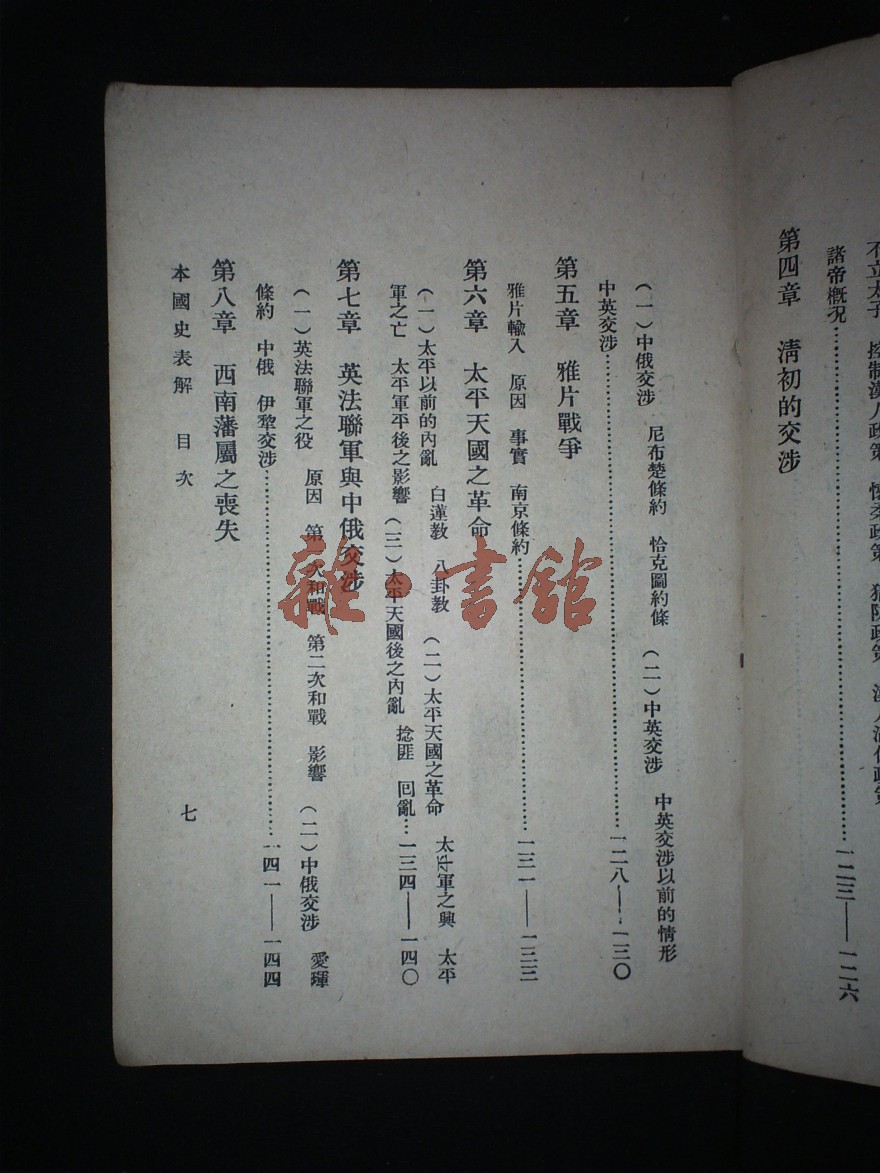 不立太子 控制漢人政策 懷柔政策 猜防政策 漢人滿化政策
諸帝概況……一二三——一二六
第四章 淸初的交涉
(一)中俄交涉 尼布楚條約 恰克圖約條 (二)中英交涉 中英交涉以前的情形
中英交涉……一二八——一三〇
第五章 雅片戰爭
雅片輸入 原因 事實 南京條約……一三一——一三三
第六章 太平天國之革命
(一)太平以前的內亂 白蓮敎 八卦敎 (二)太平天國之革命 太平軍之興 太平
軍之亡 太平軍平後之影響 (三)太平天國後之內亂 捻匪 回亂…一三四——一四〇
第七章 英法聯軍與中俄交涉
(一)英法聯軍之役 原因 第一次和戰 第二次和戰 影響 (二)中俄交涉 愛琿
條約 中俄 伊犂交涉……一四一——一四四
第八章 西南藩屬之喪失
本國史表解 目次
七
雜·書館